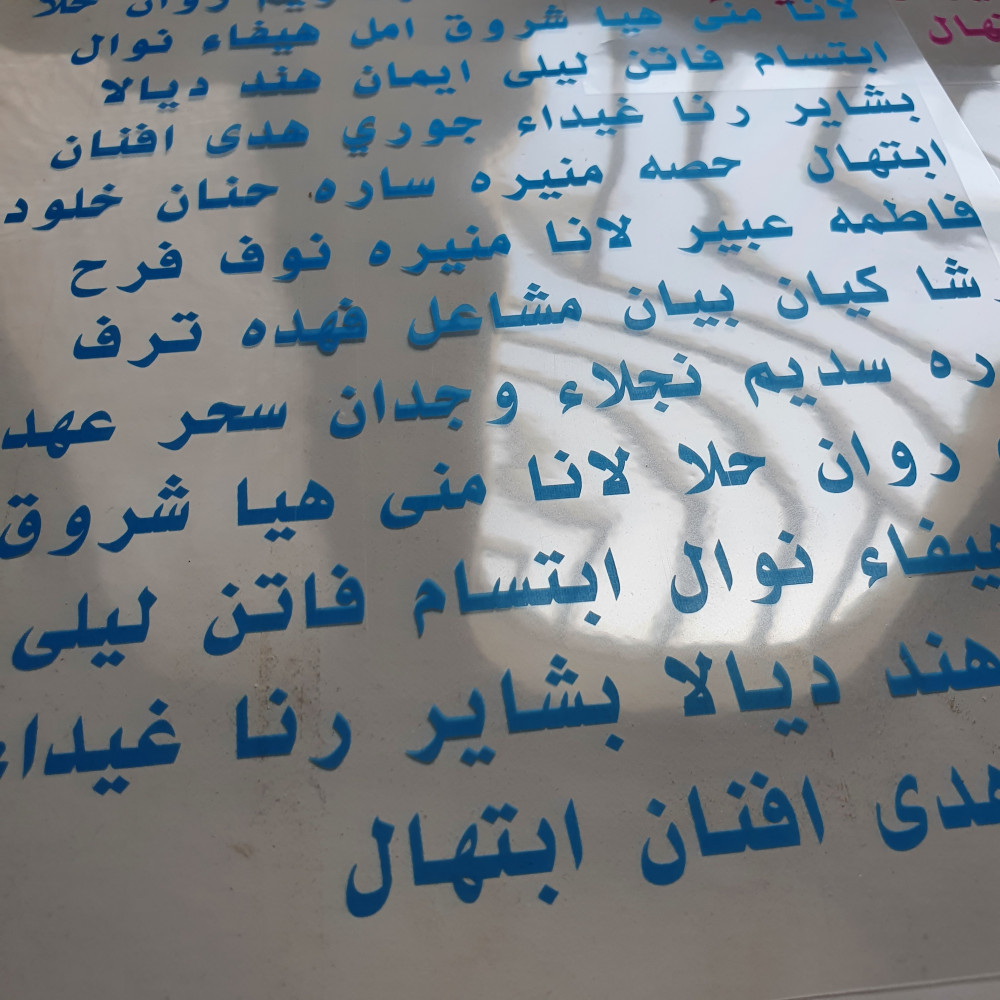 روان حلا
لانا منى هيا شروق امل هيفاء نوال
ابتسام فاتن ليلى ايمان هند ديالا
بشاير رنا غيداء جوري هدى افنان
ابتهال حصه منيره ساره حنان خلود
فاطمه عبير لانا منيره نوف فرح
رشا كيان بيان مشاعل فهده ترف
سديم نجلاء وجدان سحر عهد
روان حلا لانا منى هيا شروق
هيفاء نوال ابتسام فاتن ليلى
هند ديالا بشاير رنا غيداء
هدى افنان ابتهال